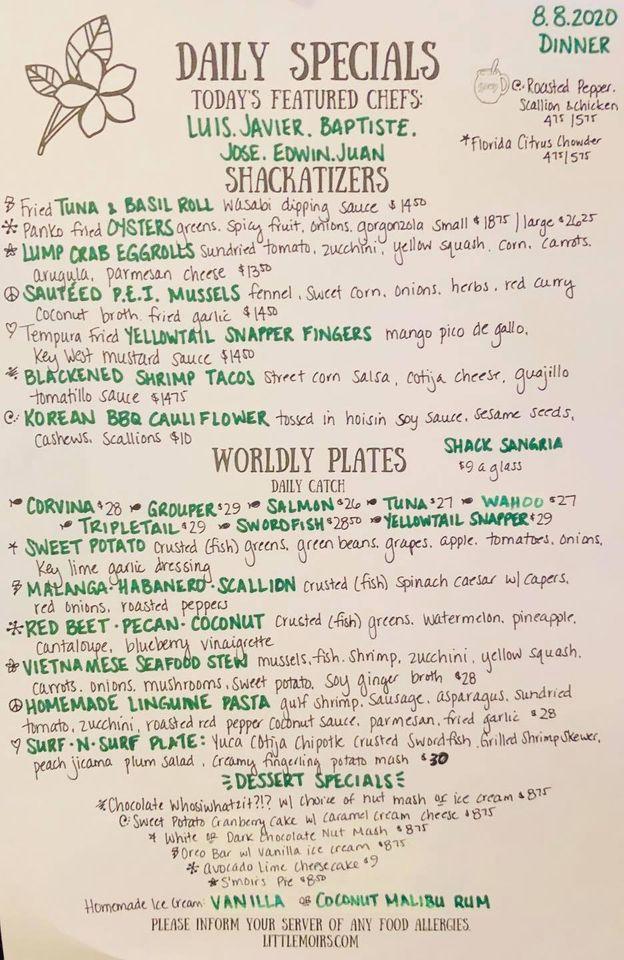 8.8.2020
DINNER
DAILY SPECIALS
TODAY'S FEATURED CHEFS:
LUIS. JAVIER. BAPTISTE.
JOSE. EDWIN. JUAN
Roasted Pepper.
Scallion & Chicken
4.75 / 5.75
*Florida Citrus Chowder
4.75 / 5.75
SHACKATIZERS
Fried TUNA & BASIL ROLL wasabi dipping sauce $14.50
Panko fried OYSTERS greens, spicy fruit, onions, gorgonzola small $18.75 / large $26.25
LUMP CRAB EGGROLLS sundried tomato, zucchini, yellow squash, corn, carrots,
arugula, parmesan cheese $13.50
SAUTÉED P.E.I. MUSSELS fennel, sweet corn, onions, herbs, red curry
coconut broth. fried garlic $14.50
Tempura fried YELLOWTAIL SNAPPER FINGERS mango pico de gallo,
Key West mustard sauce $14.50
BLACKENED SHRIMP TACOS street corn salsa, cotija cheese, guajillo
tomatillo sauce $14.75
KOREAN BBQ CAULIFLOWER tossed in hoisin soy sauce, sesame seeds,
Cashews, scallions $10
SHACK SANGRIA
$9 a glass
WORLDLY PLATES
DAILY CATCH
CORVINA $28 GROUPER $29 SALMON $26 TUNA $27 WAHOO $27
TRIPLETAIL $29 SWORDFISH $28.50 YELLOWTAIL SNAPPER $29
* SWEET POTATO crusted (fish) greens, green beans, grapes, apple, tomatoes, onions,
Key lime garlic dressing
MALANGA·HABANERO·SCALLION crusted (fish) spinach caesar w/ capers,
red onions, roasted peppers
RED BEET·PECAN·COCONUT crusted (fish) greens, watermelon, pineapple,
cantaloupe, blueberry vinaigrette
VIETNAMESE SEAFOOD STEW mussels, fish, shrimp, zucchini, yellow squash,
carrots, onions, mushrooms, sweet potato, soy ginger broth $28
HOMEMADE LINGUINE PASTA gulf shrimp, sausage, asparagus, sundried
tomato, zucchini, roasted red pepper coconut sauce, parmesan, fried garlic $28
SURF·N·SURF PLATE: Yuca Cotija Chipotle crusted Swordfish, Grilled Shrimp Skewer,
peach jicama plum salad, creamy fingerling potato mash $30
DESSERT SPECIALS
Chocolate Whosiwhatzit?!? w/ choice of nut mash or ice cream $8.75
Sweet Potato Cranberry Cake w/ caramel cream cheese $8.75
* White or Dark Chocolate Nut Mash $8.75
Oreo Bar w/ vanilla ice cream $8.75
Avocado Lime Cheesecake $9
S'moirs Pie $8.50
Homemade Ice Cream: VANILLA or COCONUT MALIBU RUM
PLEASE INFORM YOUR SERVER OF ANY FOOD ALLERGIES.
LITTLEMOIRS.COM